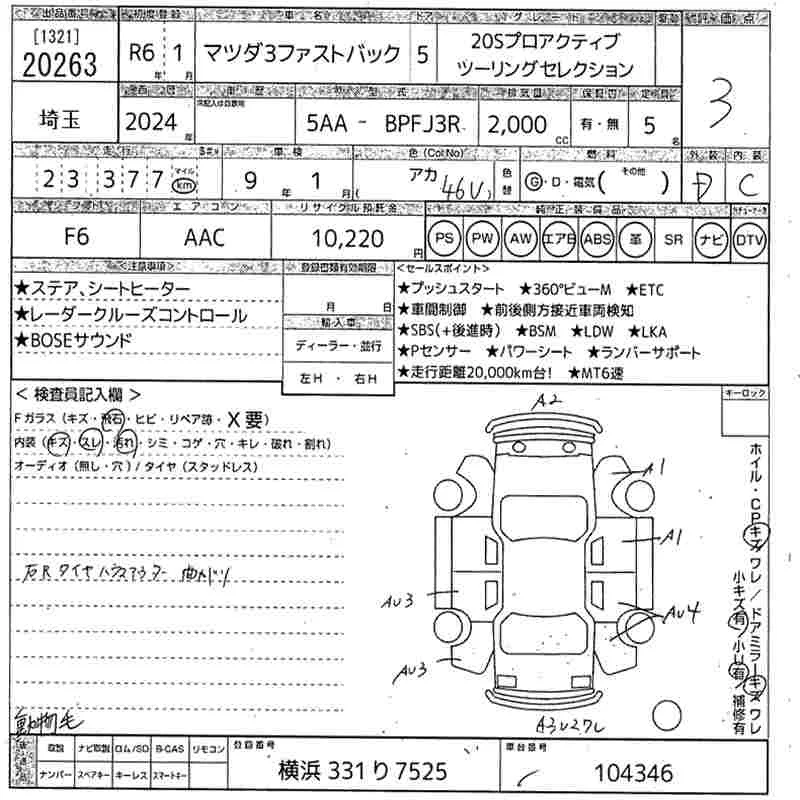 出品番号 初度登録 車名 ドア グレード 評価点
[1321]
20263
R6 年 1 月 マツダ3ファストバック 5 20Sプロアクティブ
ツーリングセレクション
3
埼玉
2024 年
5AA - BPFJ3R
排気量 2,000 CC
有・無
定員 5 名
走行 車検 色(ColNo) 燃料 外装 内装
23 377 マイル km
9 年 1 月
アカ 46V
色替
G・D・電気( その他 )
D C
シフト エアコン リサイクル預託金 純正装備品
F6 AAC 10,220 円
PS PW AW エアB ABS 革 SR ナビ DTV
<注意事項>
★ステア、シートヒーター
★レーダークルーズコントロール
★BOSEサウンド
登録書類有効期限
月 日
輸入車
ディーラー・並行
左H ・ 右H
<セールスポイント>
★プッシュスタート ★360°ビューM ★ETC
★車間制御 ★前後側方接近車両検知
★SBS(+後進時) ★BSM ★LDW ★LKA
★Pセンサー ★パワーシート ★ランバーサポート
★走行距離20,000km台! ★MT6速
キーロック
<検査員記入欄>
Fガラス(キズ・飛石・ヒビ・リペア跡・X要)
内装(キズ・スレ・汚れ・シミ・コゲ・穴・キレ・破れ・割れ)
オーディオ(無し・穴)/タイヤ(スタッドレス)
右Rタイヤハウスアウター 曲がり
動物毛
A2
A1
A1
AU3
AU4
AU3
A3U2ワレ
ホイル・CPキズワレ/ドアミラーキズワレ
小キズ有/小U有/補修有
取説 ナビ取説 ロム/SD B-CAS リモコン
ナンバー スペアキー キーレス スマートキー
登録番号
横浜 331り7525
車台番号
104346